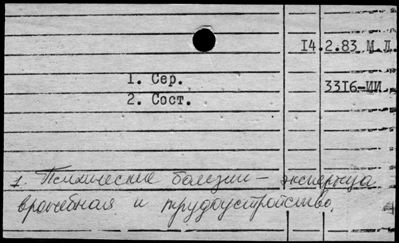 14.2.83 М.Л.
3316-ИИ
1. Сер.
2. Сост.
1. Психические болезни – экспертиза
врачебная и трудоустройство.